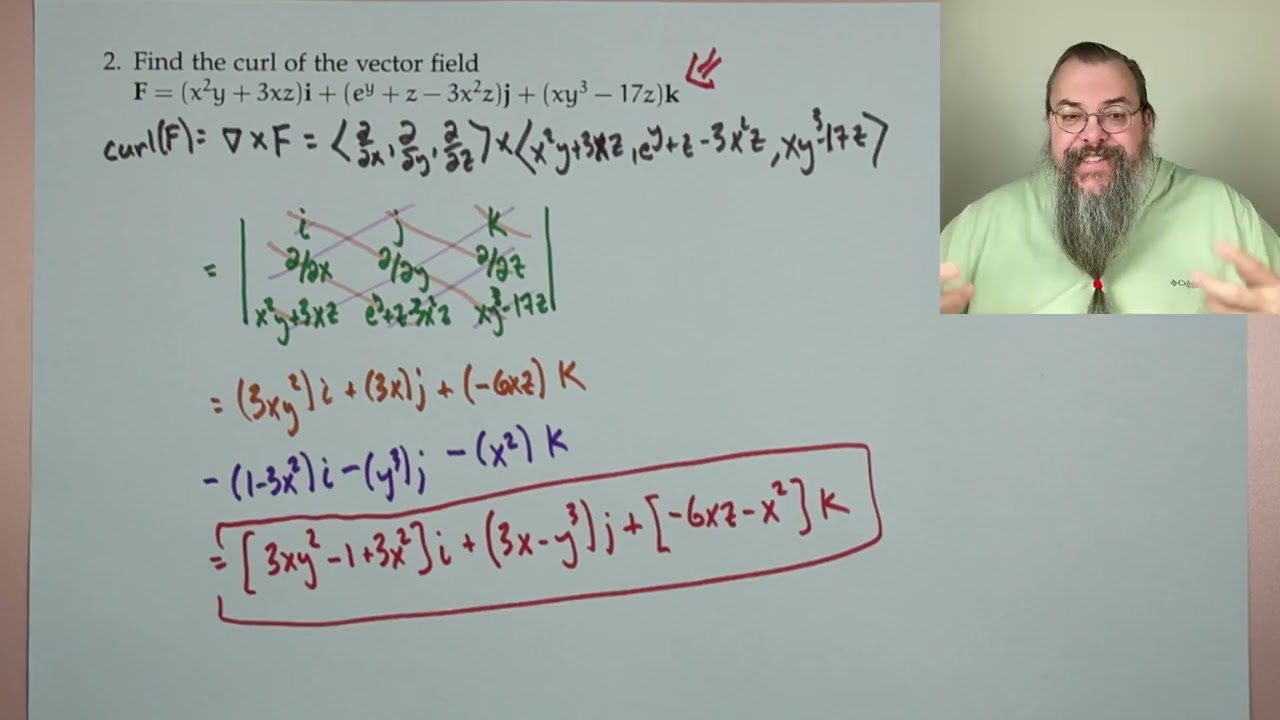 2. Find the curl of the vector field
F = (x²y + 3xz)i + (eʸ + z − 3x²z)j + (xy³ − 17z)k
curl(F) = ∇ × F = ⟨∂/∂x, ∂/∂y, ∂/∂z⟩ × ⟨x²y+3xz, eʸ+z-3x²z, xy³-17z⟩
= | i j k |
∂/∂x ∂/∂y ∂/∂z
x²y+3xz eʸ+z-3x²z xy³-17z
= (3xy²)i + (3x)j + (-6xz) k
- (1-3x²)i - (y³)j - (x²) k
= [3xy² - 1 + 3x²]i + (3x - y³)j + [-6xz - x²] k